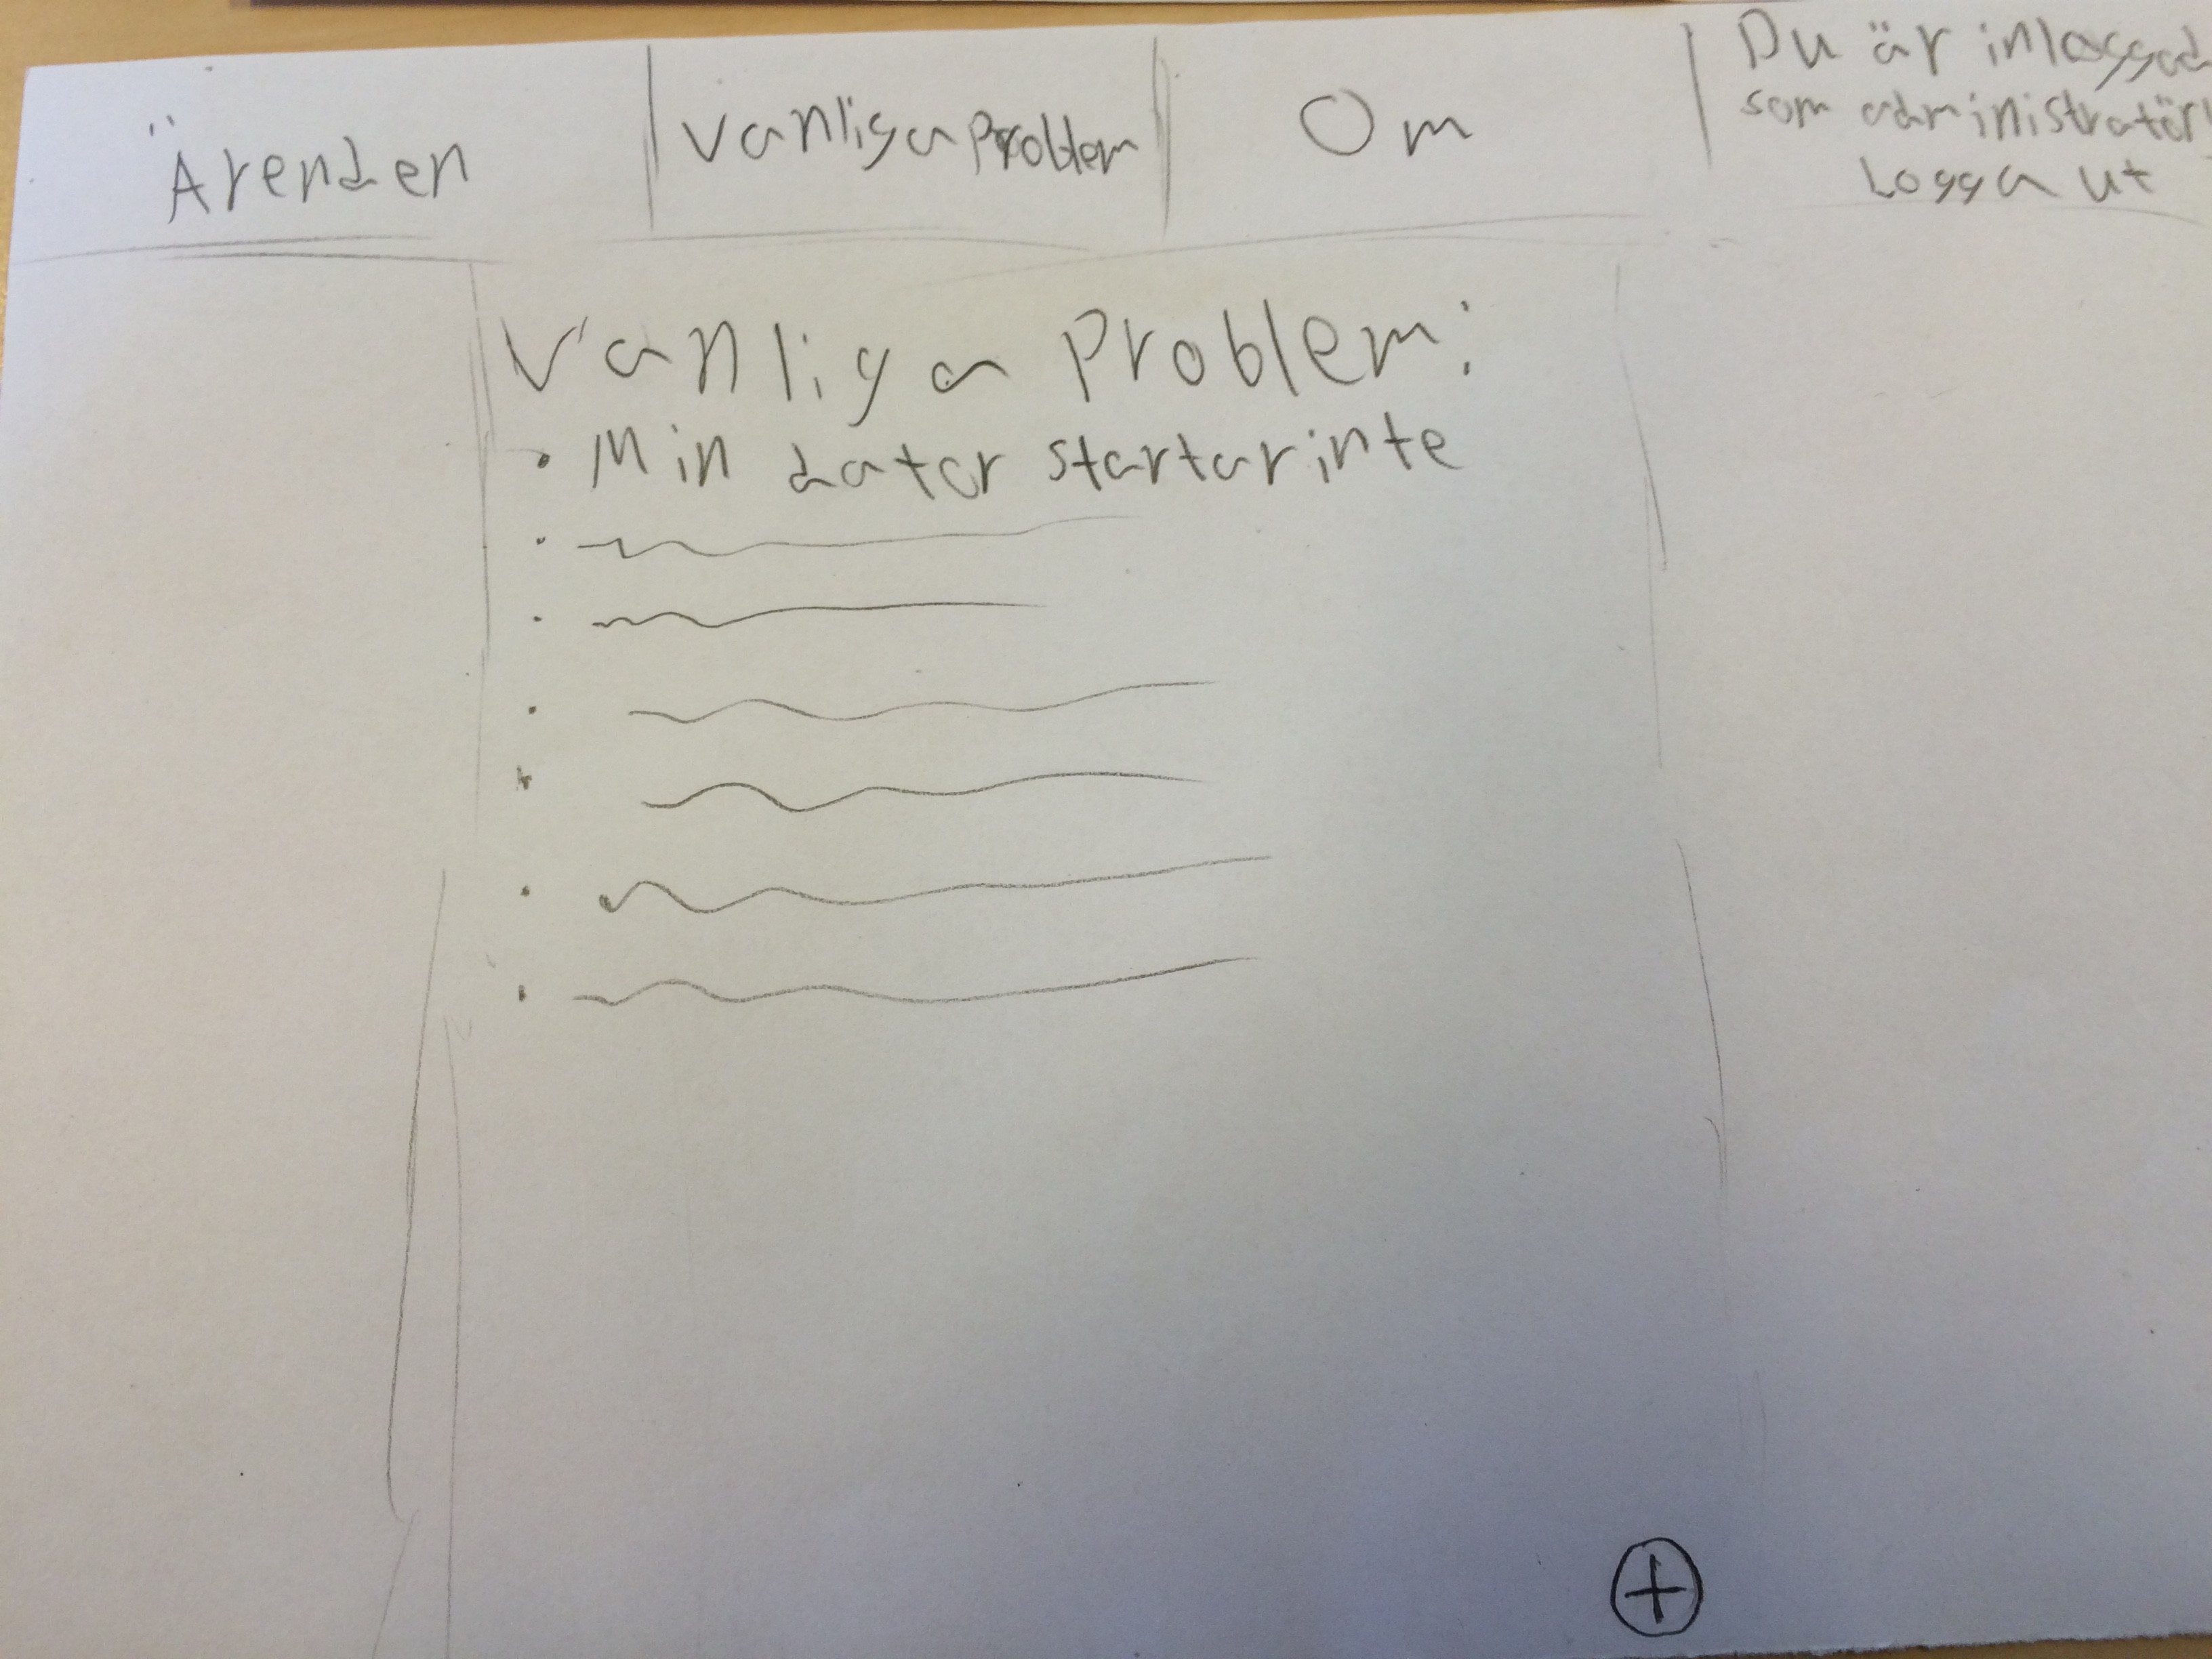 Ärenden
Vanliga Problem
Om
Du är inloggad
som administratör!
Logga ut
Vanliga Problem:
• Min dator startar inte
+